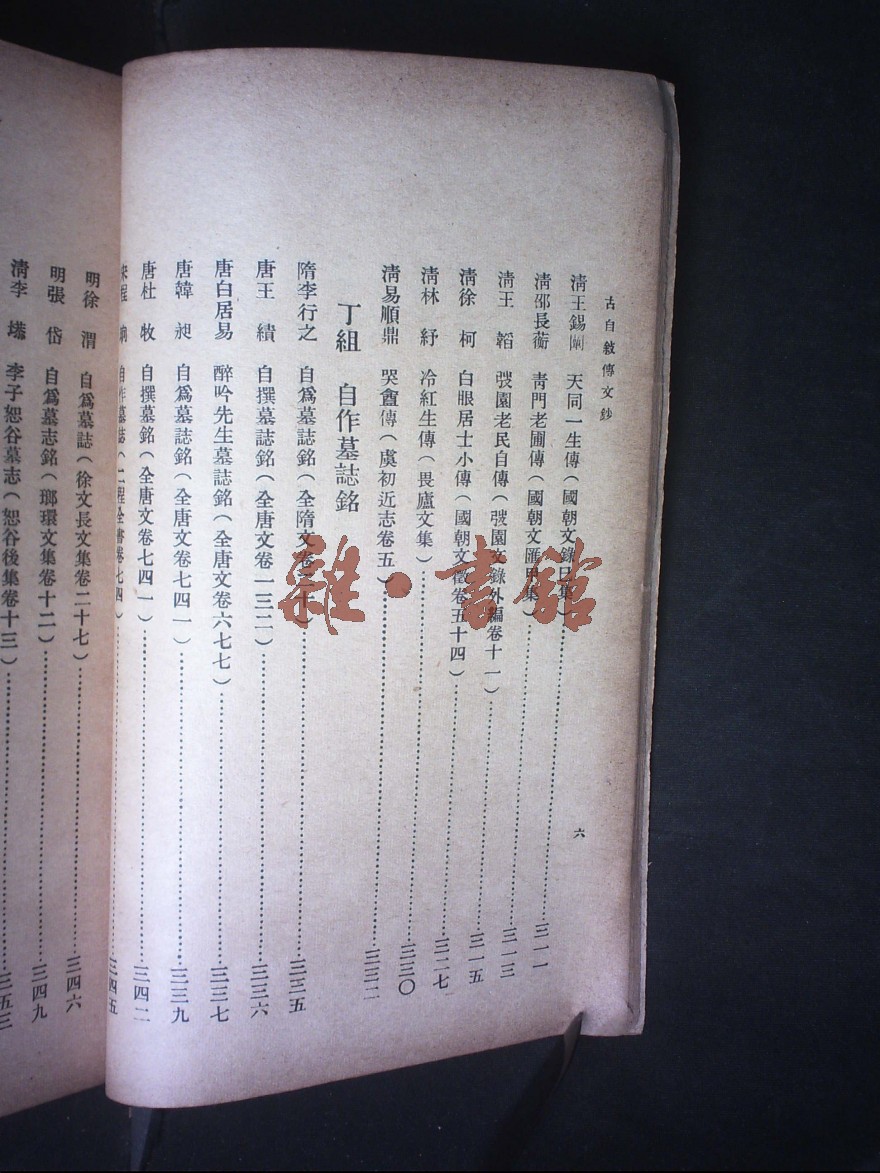 古自敘傳文鈔
六
清王錫闡 天同一生傳(國朝文錄 集)三一一
清邵長蘅 青門老圃傳(國朝文匯甲集)三一三
清王 韜 弢園老民自傳(弢園文錄外編卷十一)三一五
清徐 柯 白眼居士小傳(國朝文徵卷五十四)三二七
清林 紓 冷紅生傳(畏廬文集)三三〇
清易順鼎 哭盦傳(虞初近志卷五)三三二
丁組 自作墓誌銘
隋李行之 自爲墓誌銘(全隋文卷二十)三三五
唐王 績 自撰墓誌銘(全唐文卷一三二)三三六
唐白居易 醉吟先生墓誌銘(全唐文卷六七七)三三七
唐韓 昶 自爲墓誌銘(全唐文卷七四一)三三九
唐杜 牧 自撰墓銘(全唐文卷七四一)三四二
宋程 珦 自作墓誌(二程全書卷七四)三四五
明徐 渭 自爲墓誌(徐文長文集卷二十七)三四六
明張 岱 自爲墓志銘(瑯環文集卷十二)三四九
清李 塨 李子恕谷墓志(恕谷後集卷十三)三五三
雜·書館